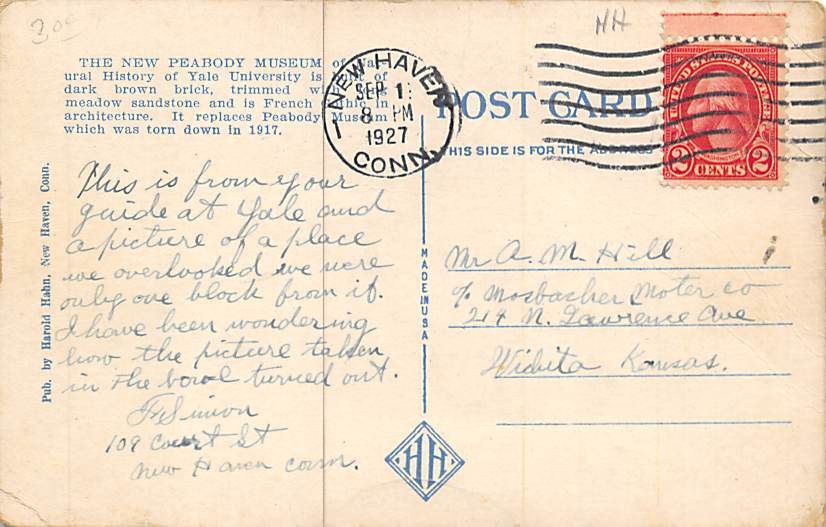 3.00
HH
THE NEW PEABODY MUSEUM of Nat-
ural History of Yale University is of
dark brown brick, trimmed
meadow sandstone and is French in
architecture. It replaces Peabody Museum
which was torn down in 1917.
NEW HAVEN
SEP 1
8 PM
1927
CONN.
POST CARD
THIS SIDE IS FOR THE ADDRESS
UNITED STATES POSTAGE
WASHINGTON
2 CENTS 2
This is from your
guide at Yale and
a picture of a place
we overlooked we were
only one block from it.
I have been wondering
how the picture taken
in the bowl turned out.
F Simon
109 Court St
New Haven conn.
Mr A. M. Hill
c/o Mosbacher Moter co
214 N. Lawrence Ave
Wichita Kansas.
Pub. by Harold Hahn, New Haven, Conn.
MADE IN USA
HH